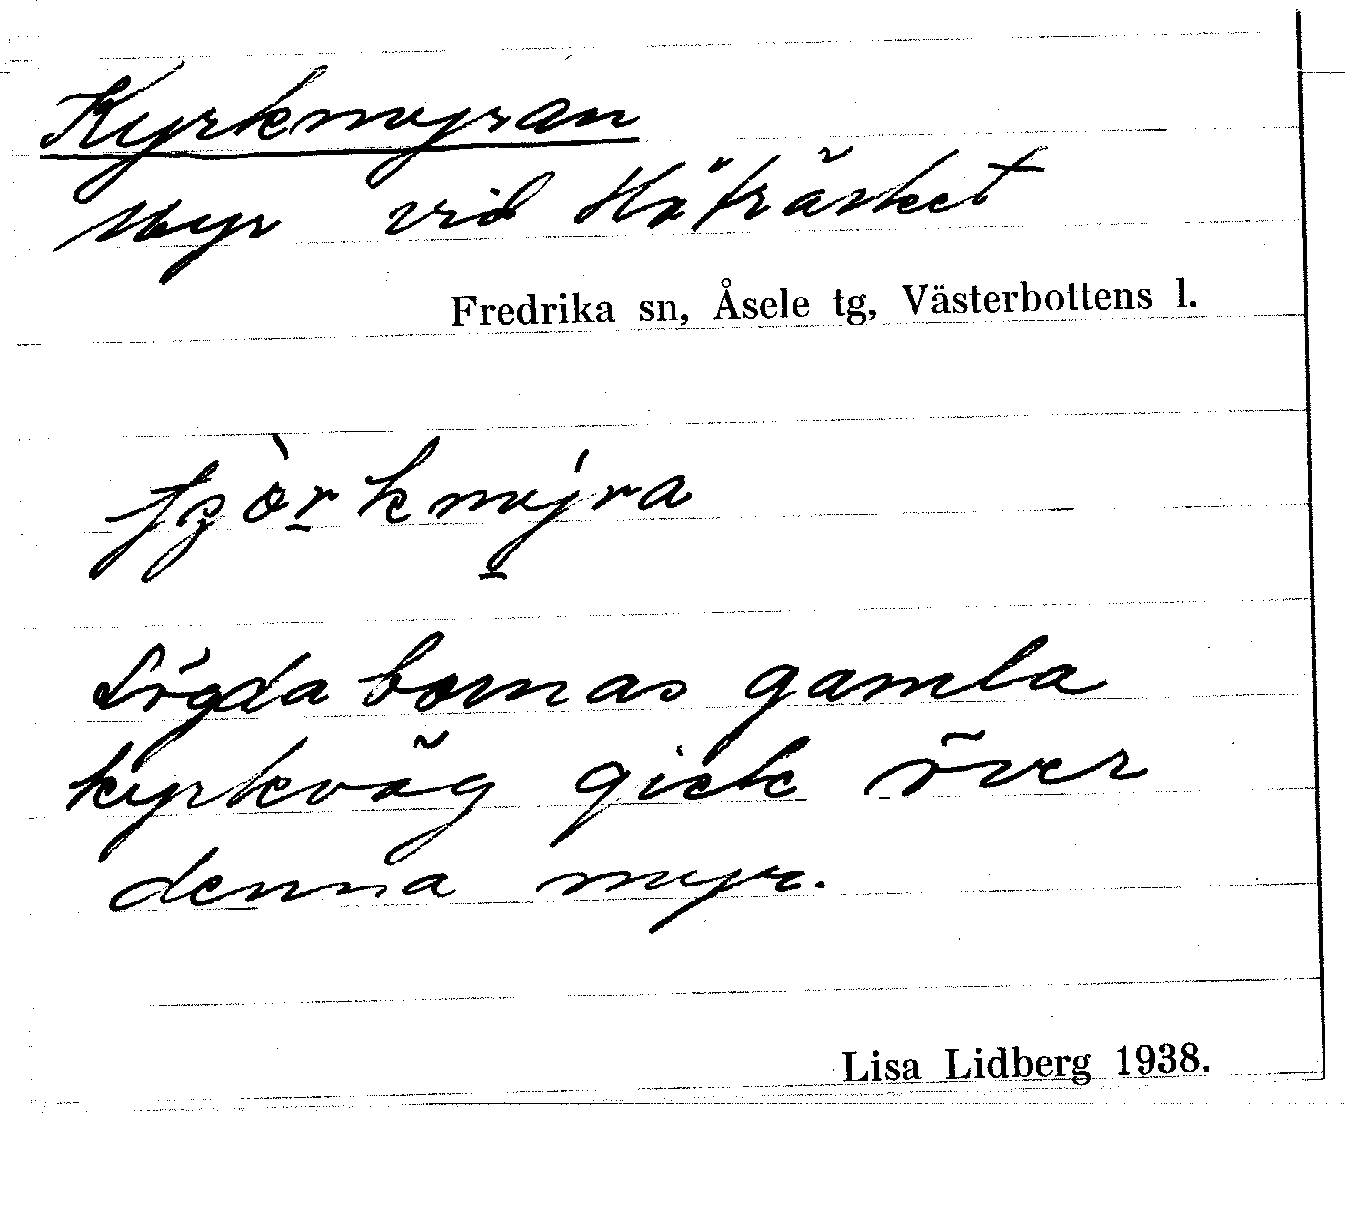 Kyrkmyran
Myr vid Häträsket
Fredrika sn, Åsele tg, Västerbottens l.
Lögdabornas gamla
kyrkväg gick över
denna myr.
Lisa Lidberg 1938.